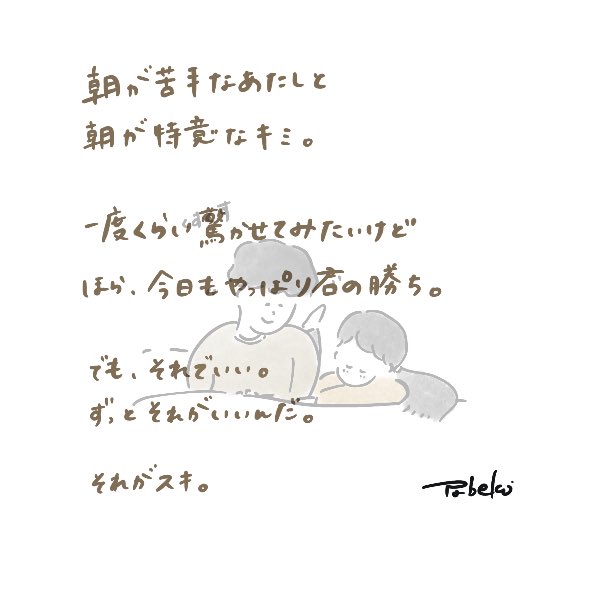 朝が苦手なあたしと
朝が特意なキミ。
一度くらい驚かせてみたいけど
ほら、今日もやっぱり君の勝ち。
でも、それでいい。
ずっとそれがいいんだ。
それがスキ。